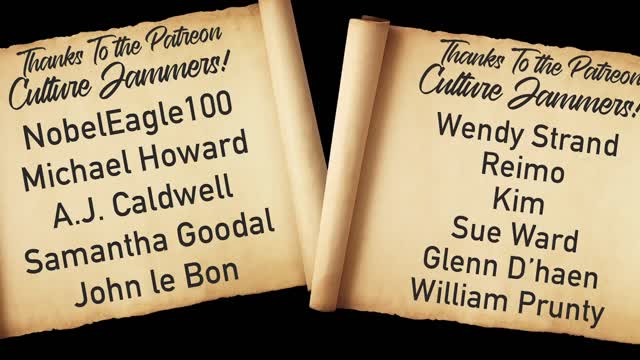 Thanks To the Patreon
Culture Jammers!
NobelEagle100
Michael Howard
A.J. Caldwell
Samantha Goodal
John le Bon
Thanks To the Patreon
Culture Jammers!
Wendy Strand
Reimo
Kim
Sue Ward
Glenn D'haen
William Prunty